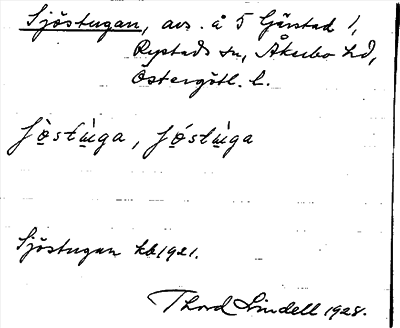 Sjöstugan, avs. å 5 Gärstad 1,
Rystads sn, Åkerbo hd,
Östergötl. l.
Sjöstugan kb 1921.
Thord Lindell 1928.